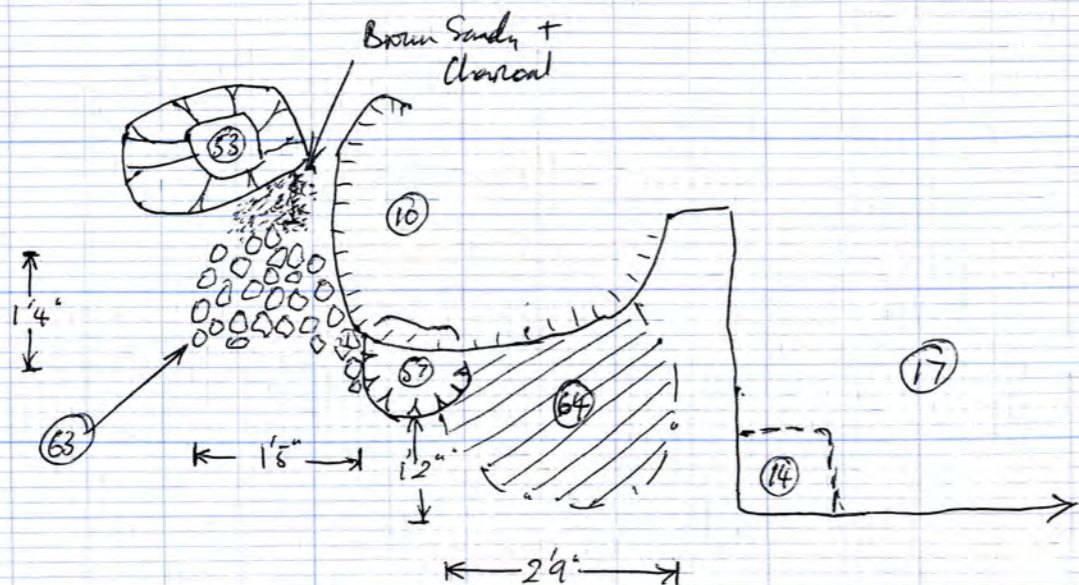 Brown Sandy +
Charcoal
53
16
1'4"
57
64
17
63
1'5"
1'2"
14
2'9"